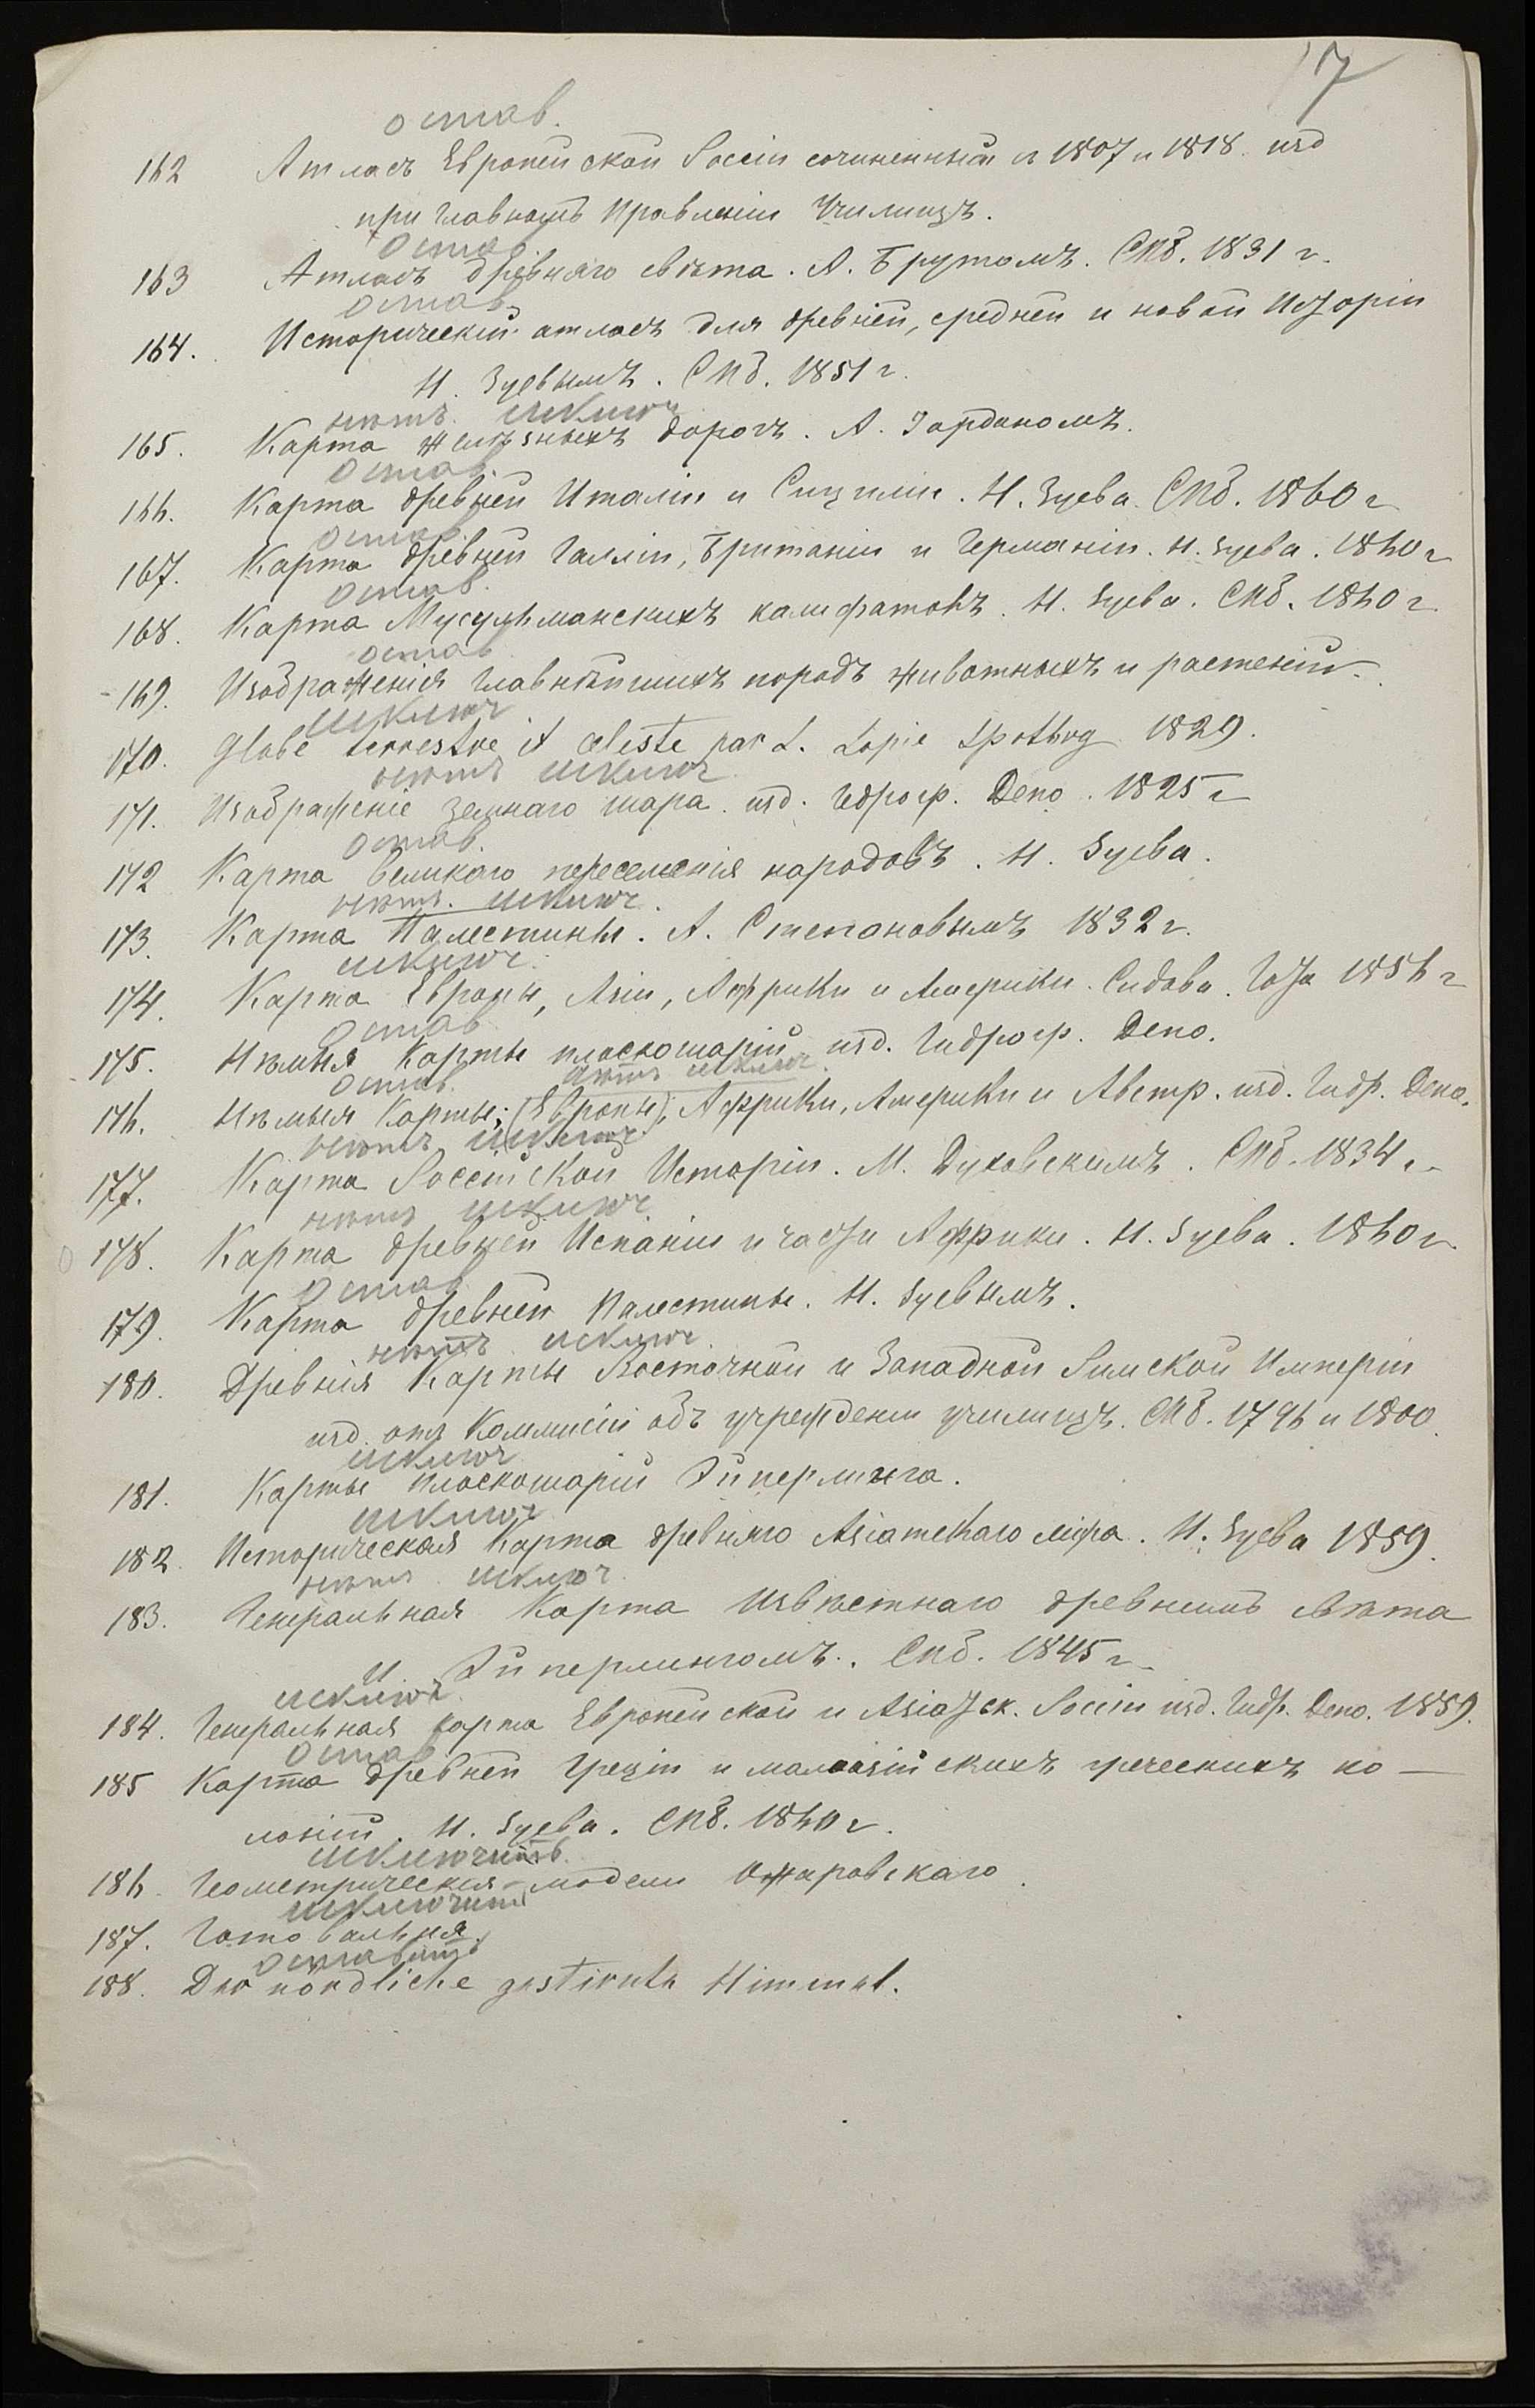 17
остав.
162 Атласъ Европейской Россіи сочиненный въ 1807 и 1818. изд
при Главномъ Правленіи Училищъ.
остав.
163 Атласъ древняго свѣта. А. Брутомъ. СПб. 1831 г.
остав.
164. Историческій атласъ для древней, средней и новой Исторіи
Н. Зуевымъ. СПб. 1851 г.
нѣтъ. исключ.
165. Карта желѣзныхъ дорогъ. А. Іорданомъ.
остав.
166. Карта древней Италіи и Сициліи. Н. Зуева. СПб. 1860 г
остав.
167. Карта древней Галліи, Британіи и Германіи. Н. Зуева. 1860 г
остав.
168. Карта Мусульманскихъ калифатовъ. Н. Зуева. СПб. 1860 г.
остав
169. Изображенія главнѣйшихъ породъ животныхъ и растеній.
исключ
170. Globe terrestre et celeste par L. Lapie 1829.
нѣтъ исключ.
171. Изображеніе земнаго шара. изд. Гдрогр. Депо. 1825 г
остав.
172 Карта великаго переселенія народовъ. Н. Зуева.
нѣтъ. исключ.
173. Карта Палестины. А. Степановымъ 1832 г.
исключ.
174. Карта Европы, Азіи, Африки и Америки. Сидова. Гота 1856 г
остав
175. Нѣмыя Карты плоскошарій изд. Гидрогр. Депо.
остав. нѣтъ исключ.
176. Нѣмыя Карты: (Европы), Африки, Америки и Австр. изд. Гидр. Депо.
нѣтъ исключ.
177. Карта Россійской Исторіи. М. Духовскимъ. СПб. 1834 г.
нѣтъ исключ.
178. Карта древней Испаніи и части Африки. Н. Зуева. 1860 г.
остав
179. Карта древней Палестины. Н. Зуевымъ.
нѣтъ исключ.
180. Древнія Карты Восточной и Западной Римской Имперіи
изд. отъ Коммисіи объ учрежденіи училищъ. СПб. 1796 и 1800.
исключ
181. Карты плоскошарій Эйнерлинга.
исключ
182. Историческая Карта древняго Азіатскаго міра. Н. Зуева 1859.
нѣтъ исключ.
183. Генеральная Карта извѣстнаго древнимъ свѣта
И. Эйнерлингомъ. СПб. 1845 г.
исключ.
184. Генеральная карта Европейской и Азіатск. Россіи изд. Гидр. Депо. 1859.
остав
185 Карта древней Греціи и малоазійскихъ греческихъ ко-
лоній. Н. Зуева. СПб. 1860 г.
исключить.
186. Геометрическія модели Ожаровскаго.
исключить
187. Готовальня.
оставить
188. Der nördliche gestirnte Himmel.